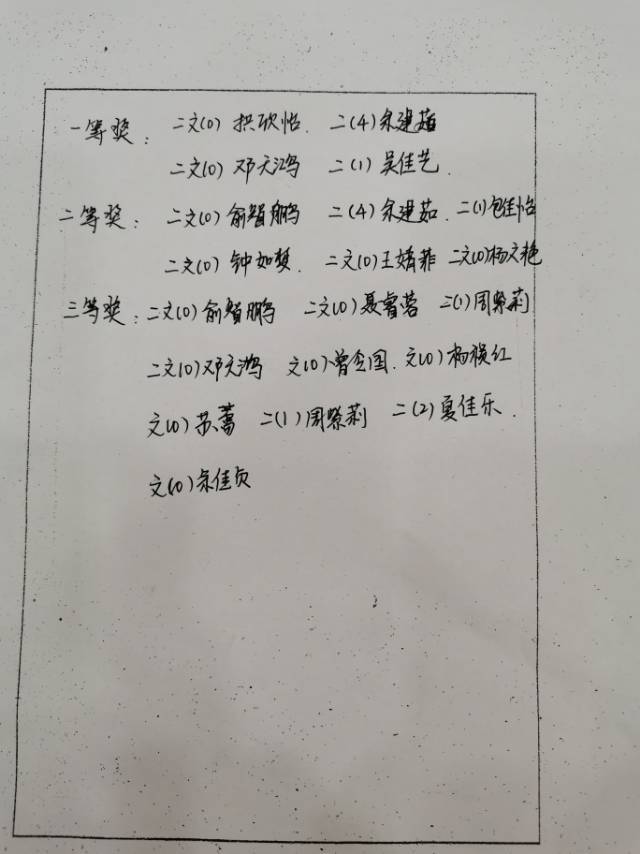 一等奖： 二文(10) 洪欣怡. 二(4)余建茹
二文(10) 邓天鸿 二(1) 吴佳艺.
二等奖： 二文(10) 俞智鹏 二(4)余建茹. 二(1)包佳怡
二文(10) 钟如梦. 二文(10)王婧菲 二文(10)杨文艳
三等奖： 二文(10) 俞智鹏 二文(10)聂睿蓉 二(1)周紫莉
二文(10)邓天鸿 文(10)曾念国. 文(10) 杨祯红
文(10) 苏蕾 二(1)周紫莉 二(2)夏佳乐.
文(10)余佳贞